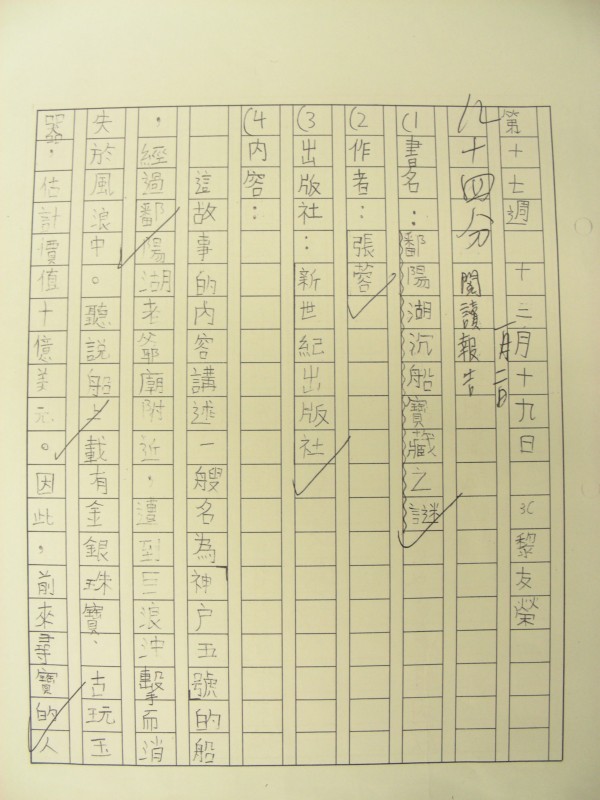 第十七週 十二月十九日 3C 黎友榮
一月二日
八十四分 閱讀報告
(1書名：鄱陽湖沉船寶藏之謎
(2作者：張蓉
(3出版社：新世紀出版社
(4內容：
這故事的內容講述一艘名為「神户五號」的船
，經過鄱陽湖老爺廟附近，遭到巨浪沖擊而消
失於風浪中。聽說船上載有金銀珠寶、古玩玉
器，估計價值十億美元。因此，前來尋寶的人